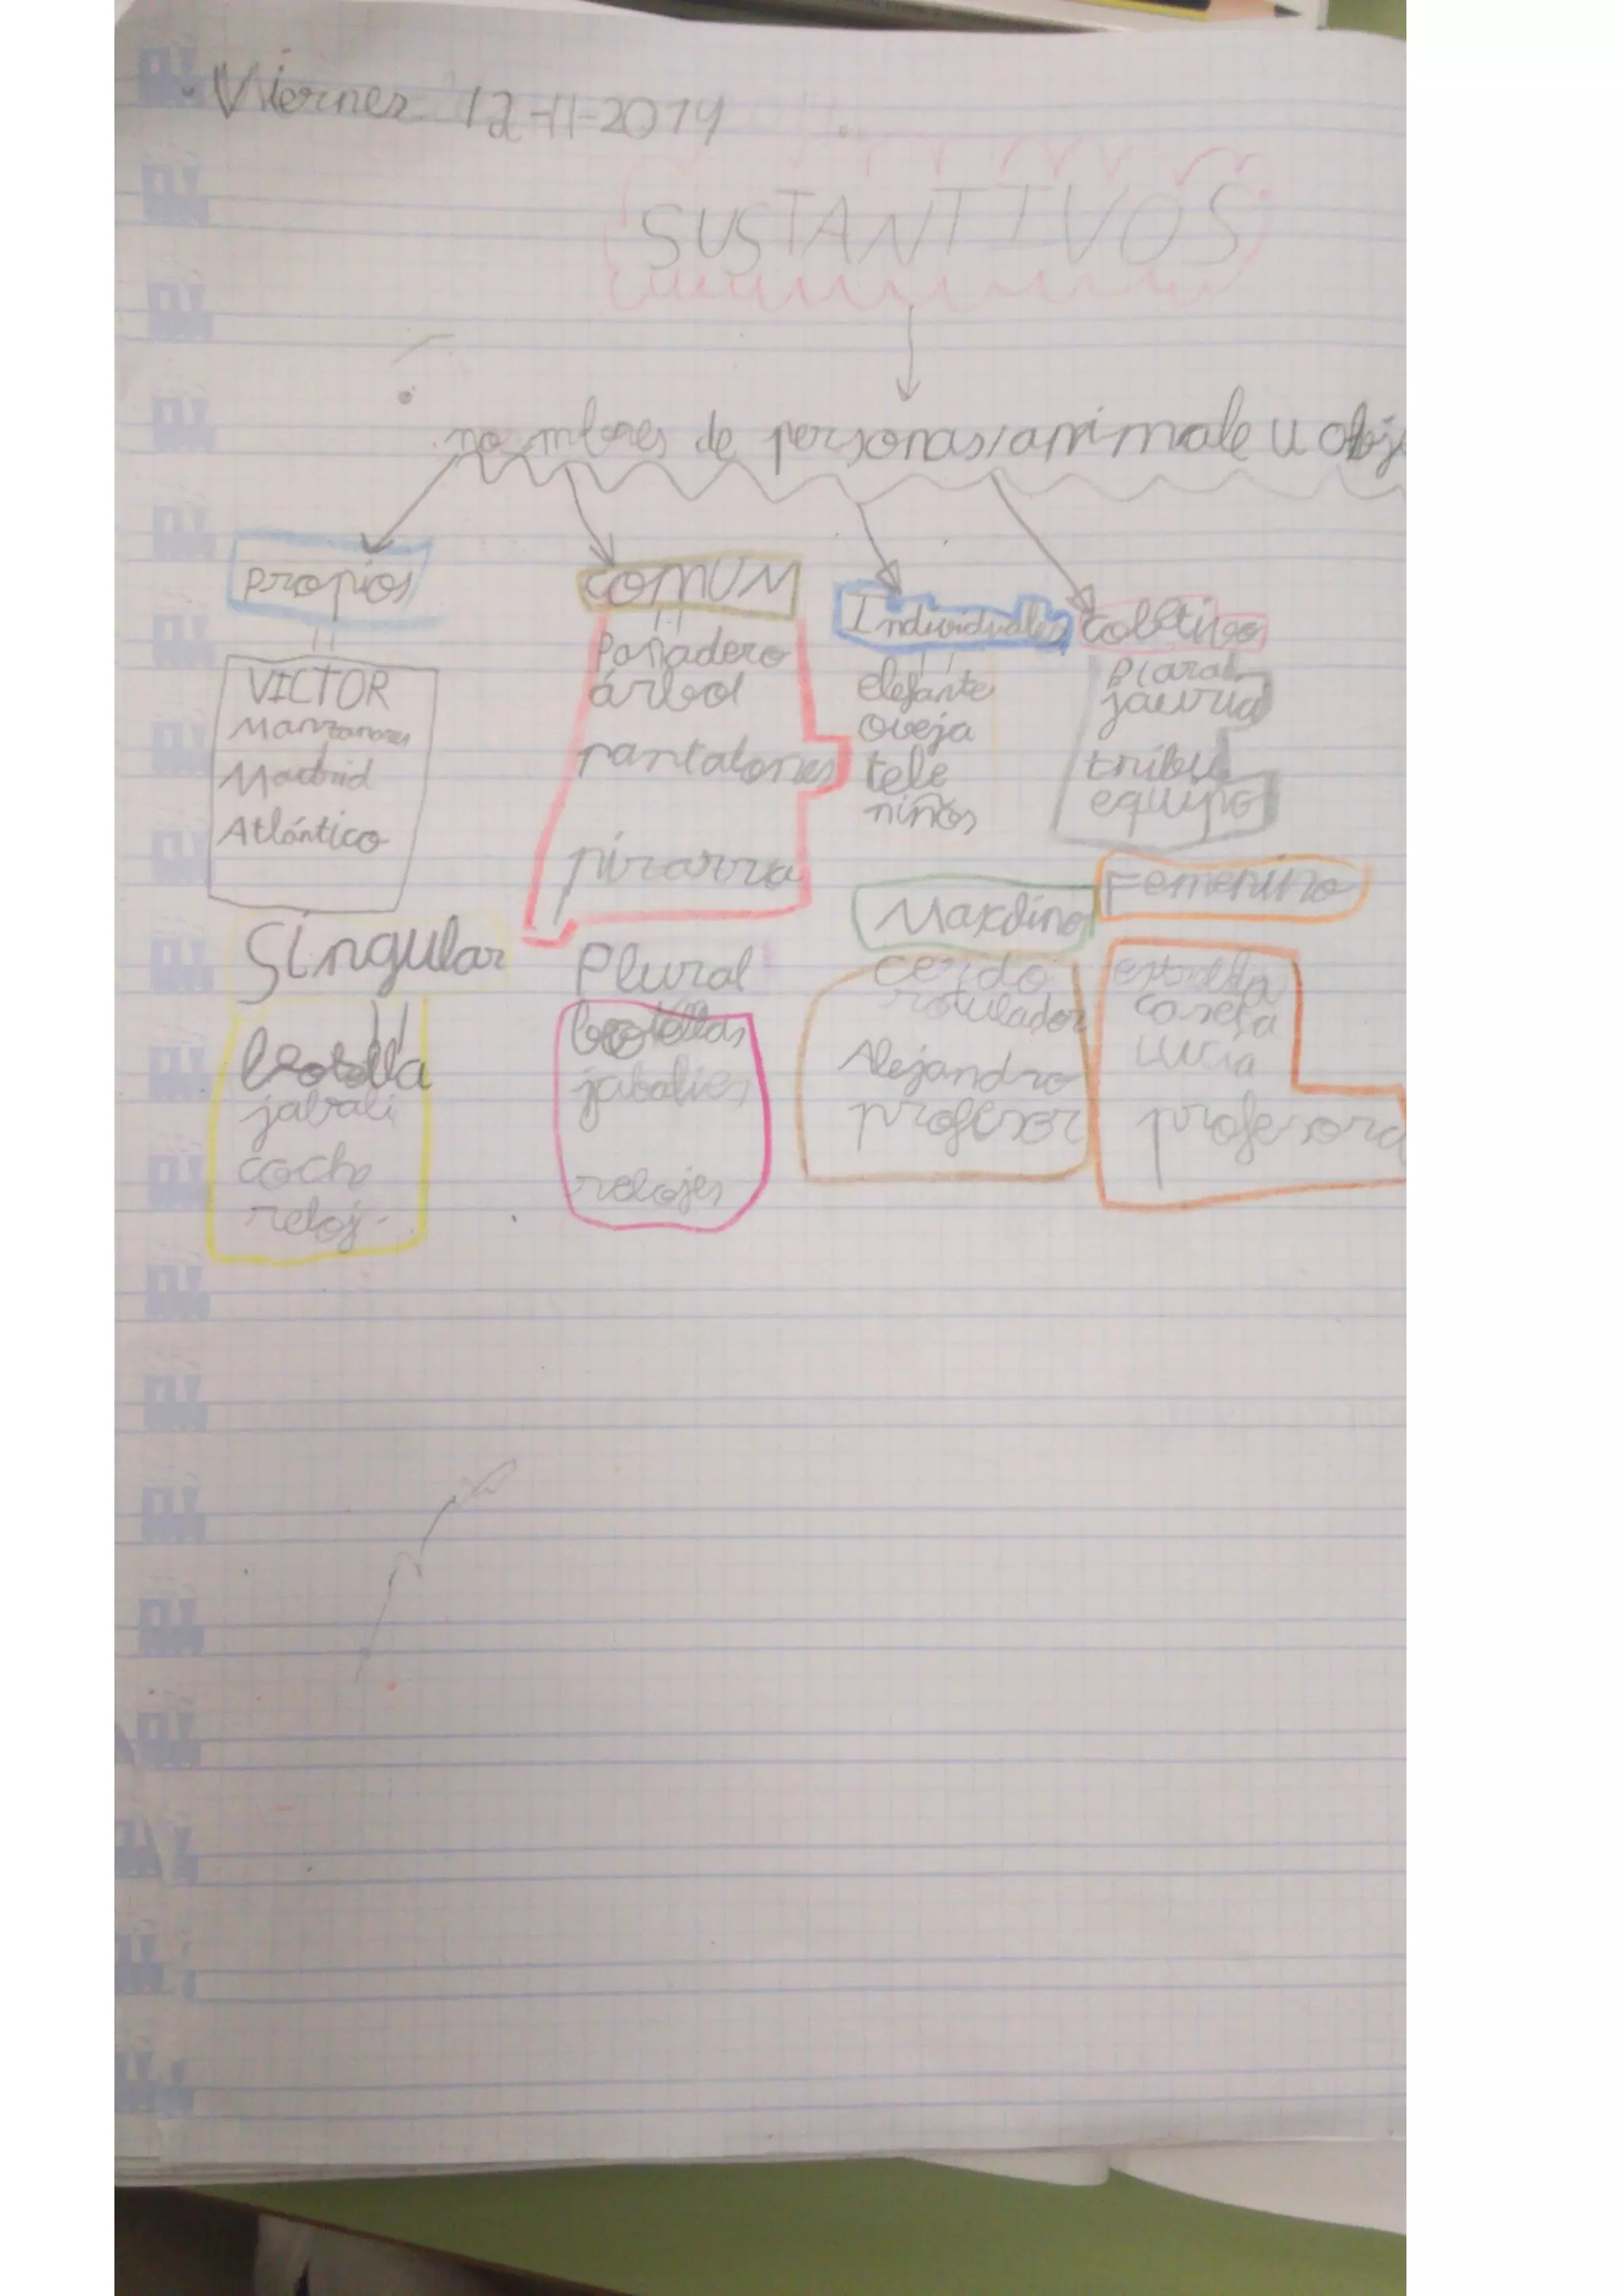 Viernes 12-11-2014
SUSTANTIVOS
nombres de personas, animale u obj
propios
VICTOR
Manzanares
Madrid
Atlántico
COMUN
Pañadero
árbol
pantalones
pizarra
Individuales
elefante
oveja
tele
niños
Coletivos
Piara
jauria
tribu
equipo
Singular
botella
jabali
coche
reloj
Plural
botellas
jabalies
relojes
cerdo
rotulador
Alejandro
profesor
Femenino
estrella
Lucia
profesora